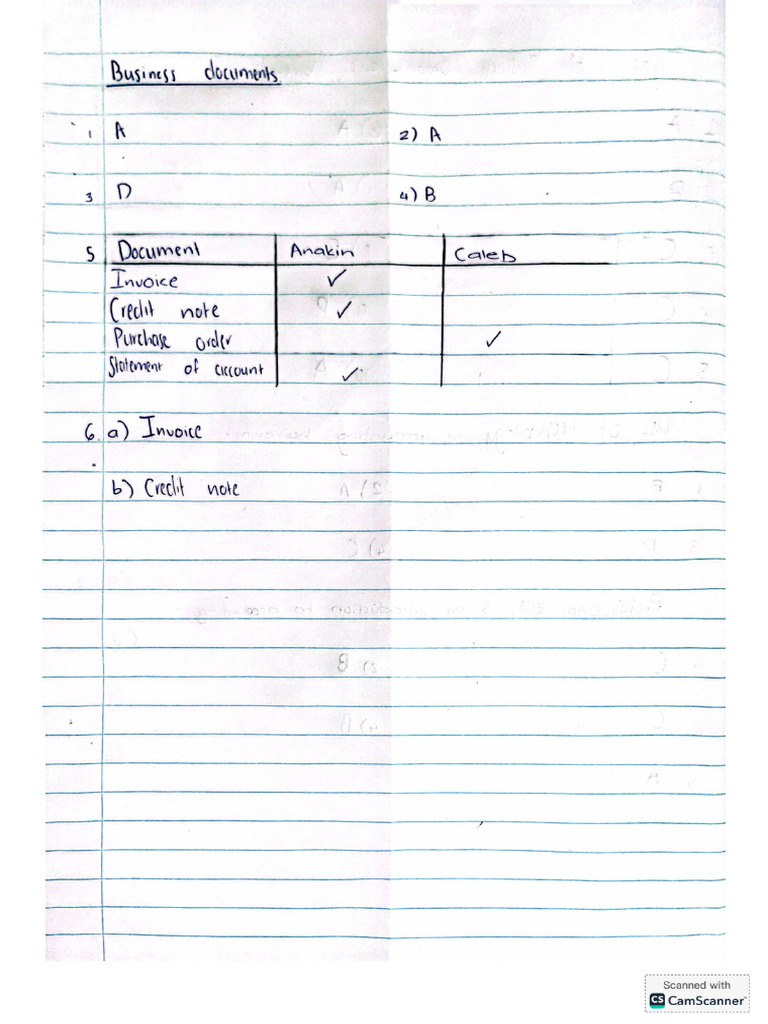 Business documents
1 A 2) A
3 D 4) B
5 Document Anakin Caleb
Invoice ✓
Credit note ✓
Purchase order ✓
Statement of account ✓
6. a) Invoice
b) Credit note
Scanned with
CS CamScanner